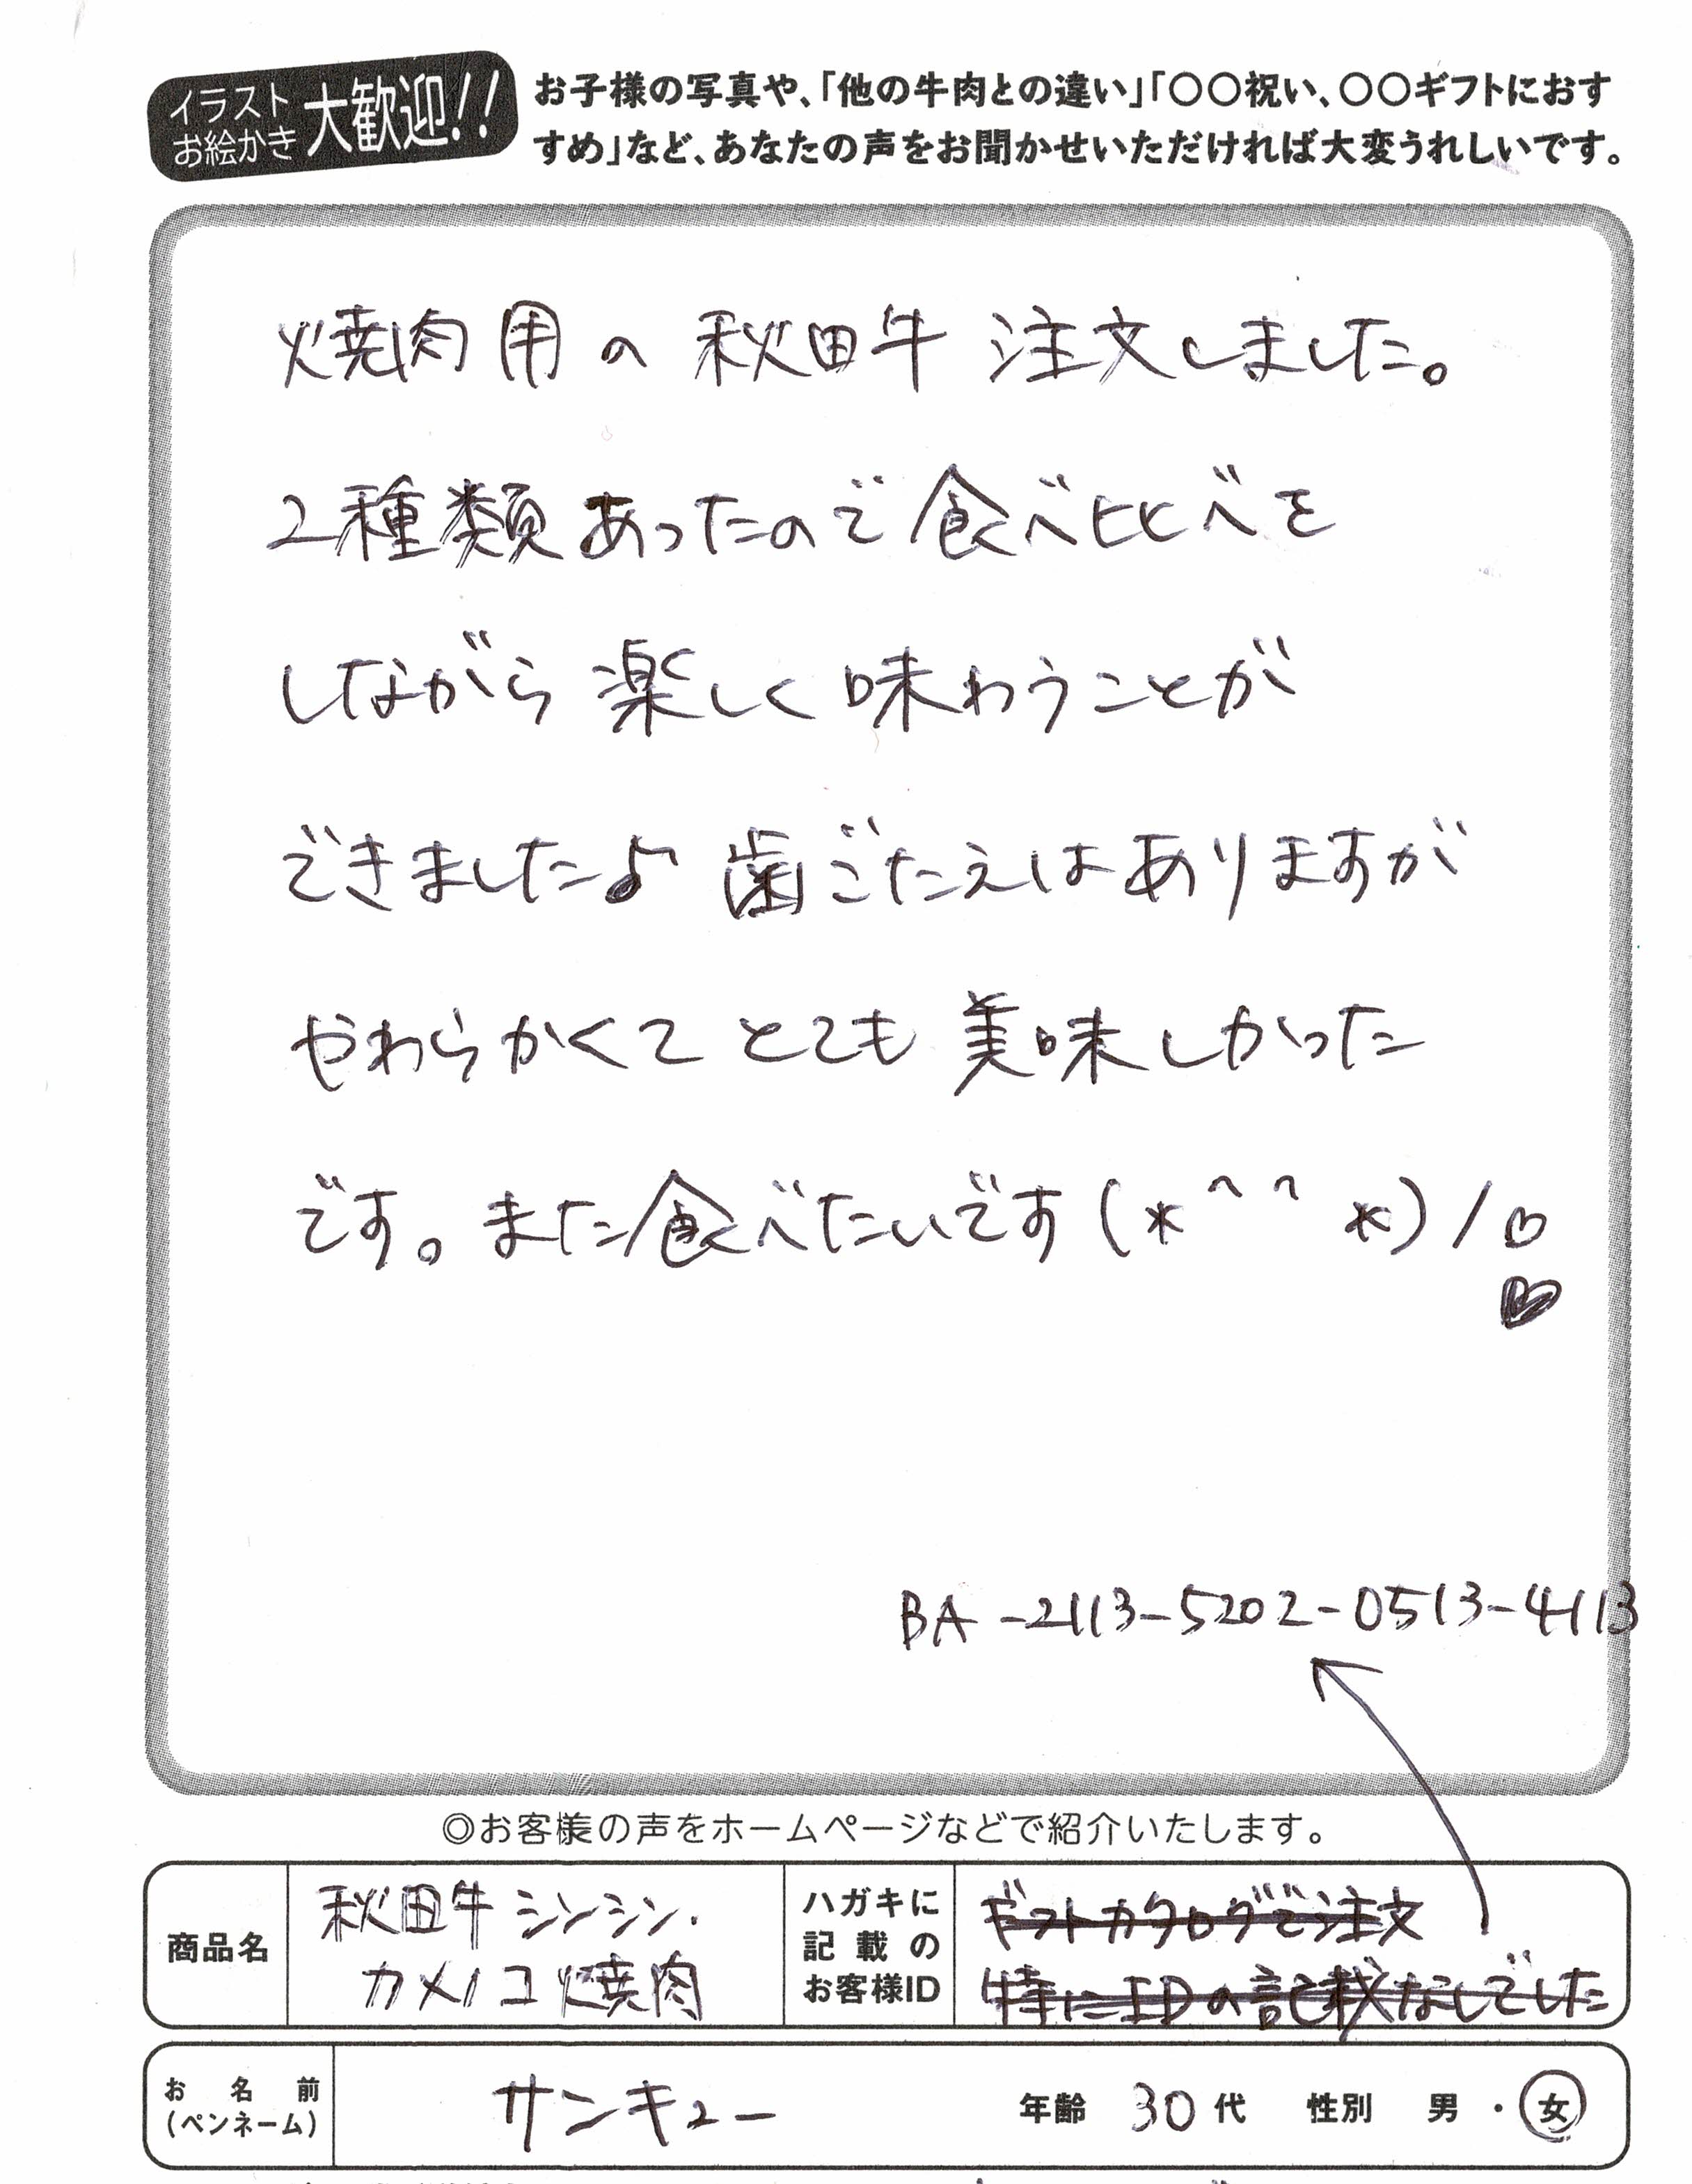 イラスト
お絵かき
大歓迎!!
お子様の写真や、「他の牛肉との違い」「〇〇祝い、〇〇ギフトにおす
すめ」など、あなたの声をお聞かせいただければ大変うれしいです。
焼肉用の秋田牛 注文しました。
2種類あったので食べ比べを
しながら楽しく味わうことが
できました♪ 歯ごたえはありますが
やわらかくてとても美味しかった
です。また食べたいです(*^^*)/♡
♥
BA-2113-5202-0513-4113
◎お客様の声をホームページなどで紹介いたします。
商品名
秋田牛シンシン・
カメノコ焼肉
ハガキに
記載の
お客様ID
ギフトカタログで注文
特にIDの記載なしでした
お名前
(ペンネーム)
サンキュー
年齢 30代 性別 男・女